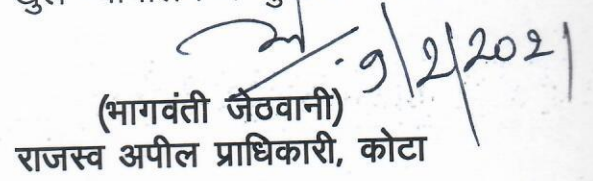 9/2/2021
(भागवंती जेठवानी)
राजस्व अपील प्राधिकारी, कोटा